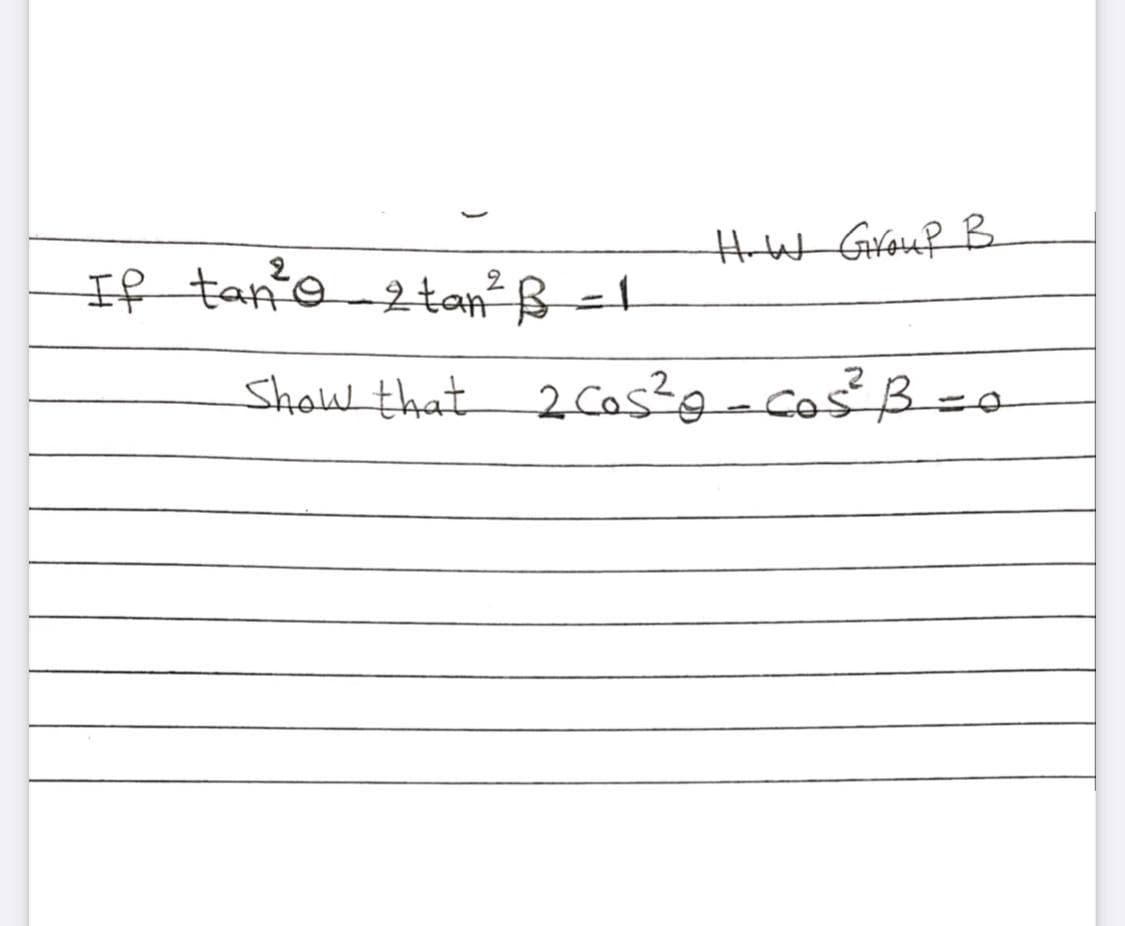 H.W Group B
If tan²θ - 2tan²β = 1
Show that 2 Cos²θ - Cos²β = 0